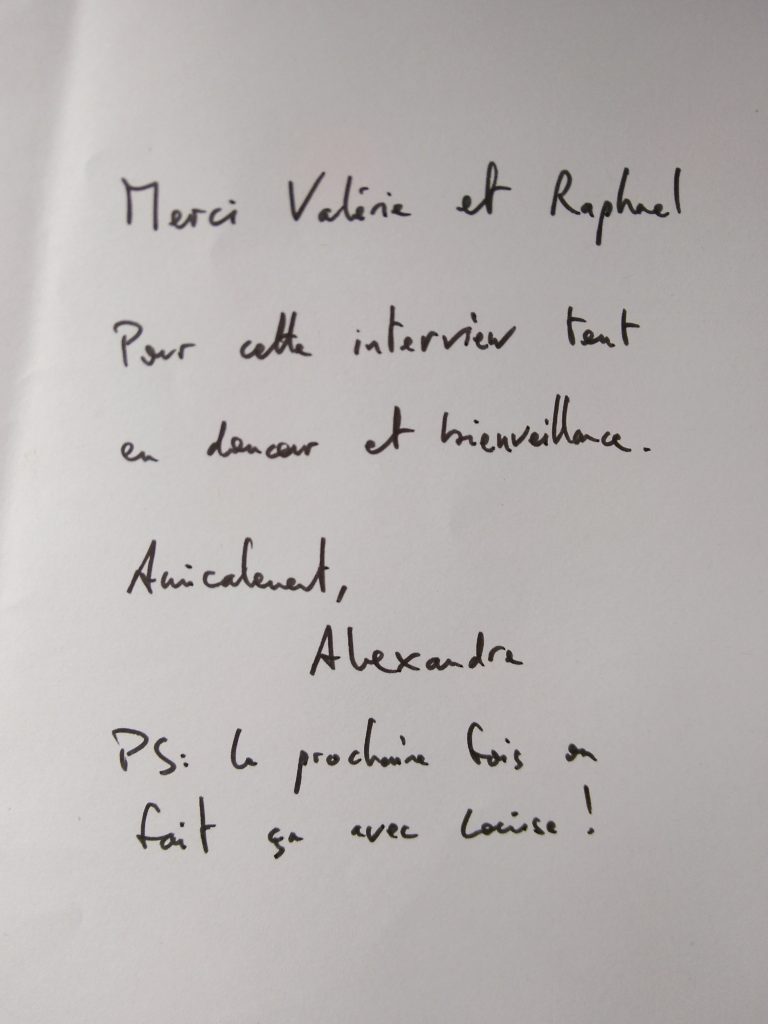 Merci Valérie et Raphael
Pour cette interview tout
en douceur et bienveillance.
Amicalement,
Alexandre
PS: la prochaine fois on
fait ça avec Louise !